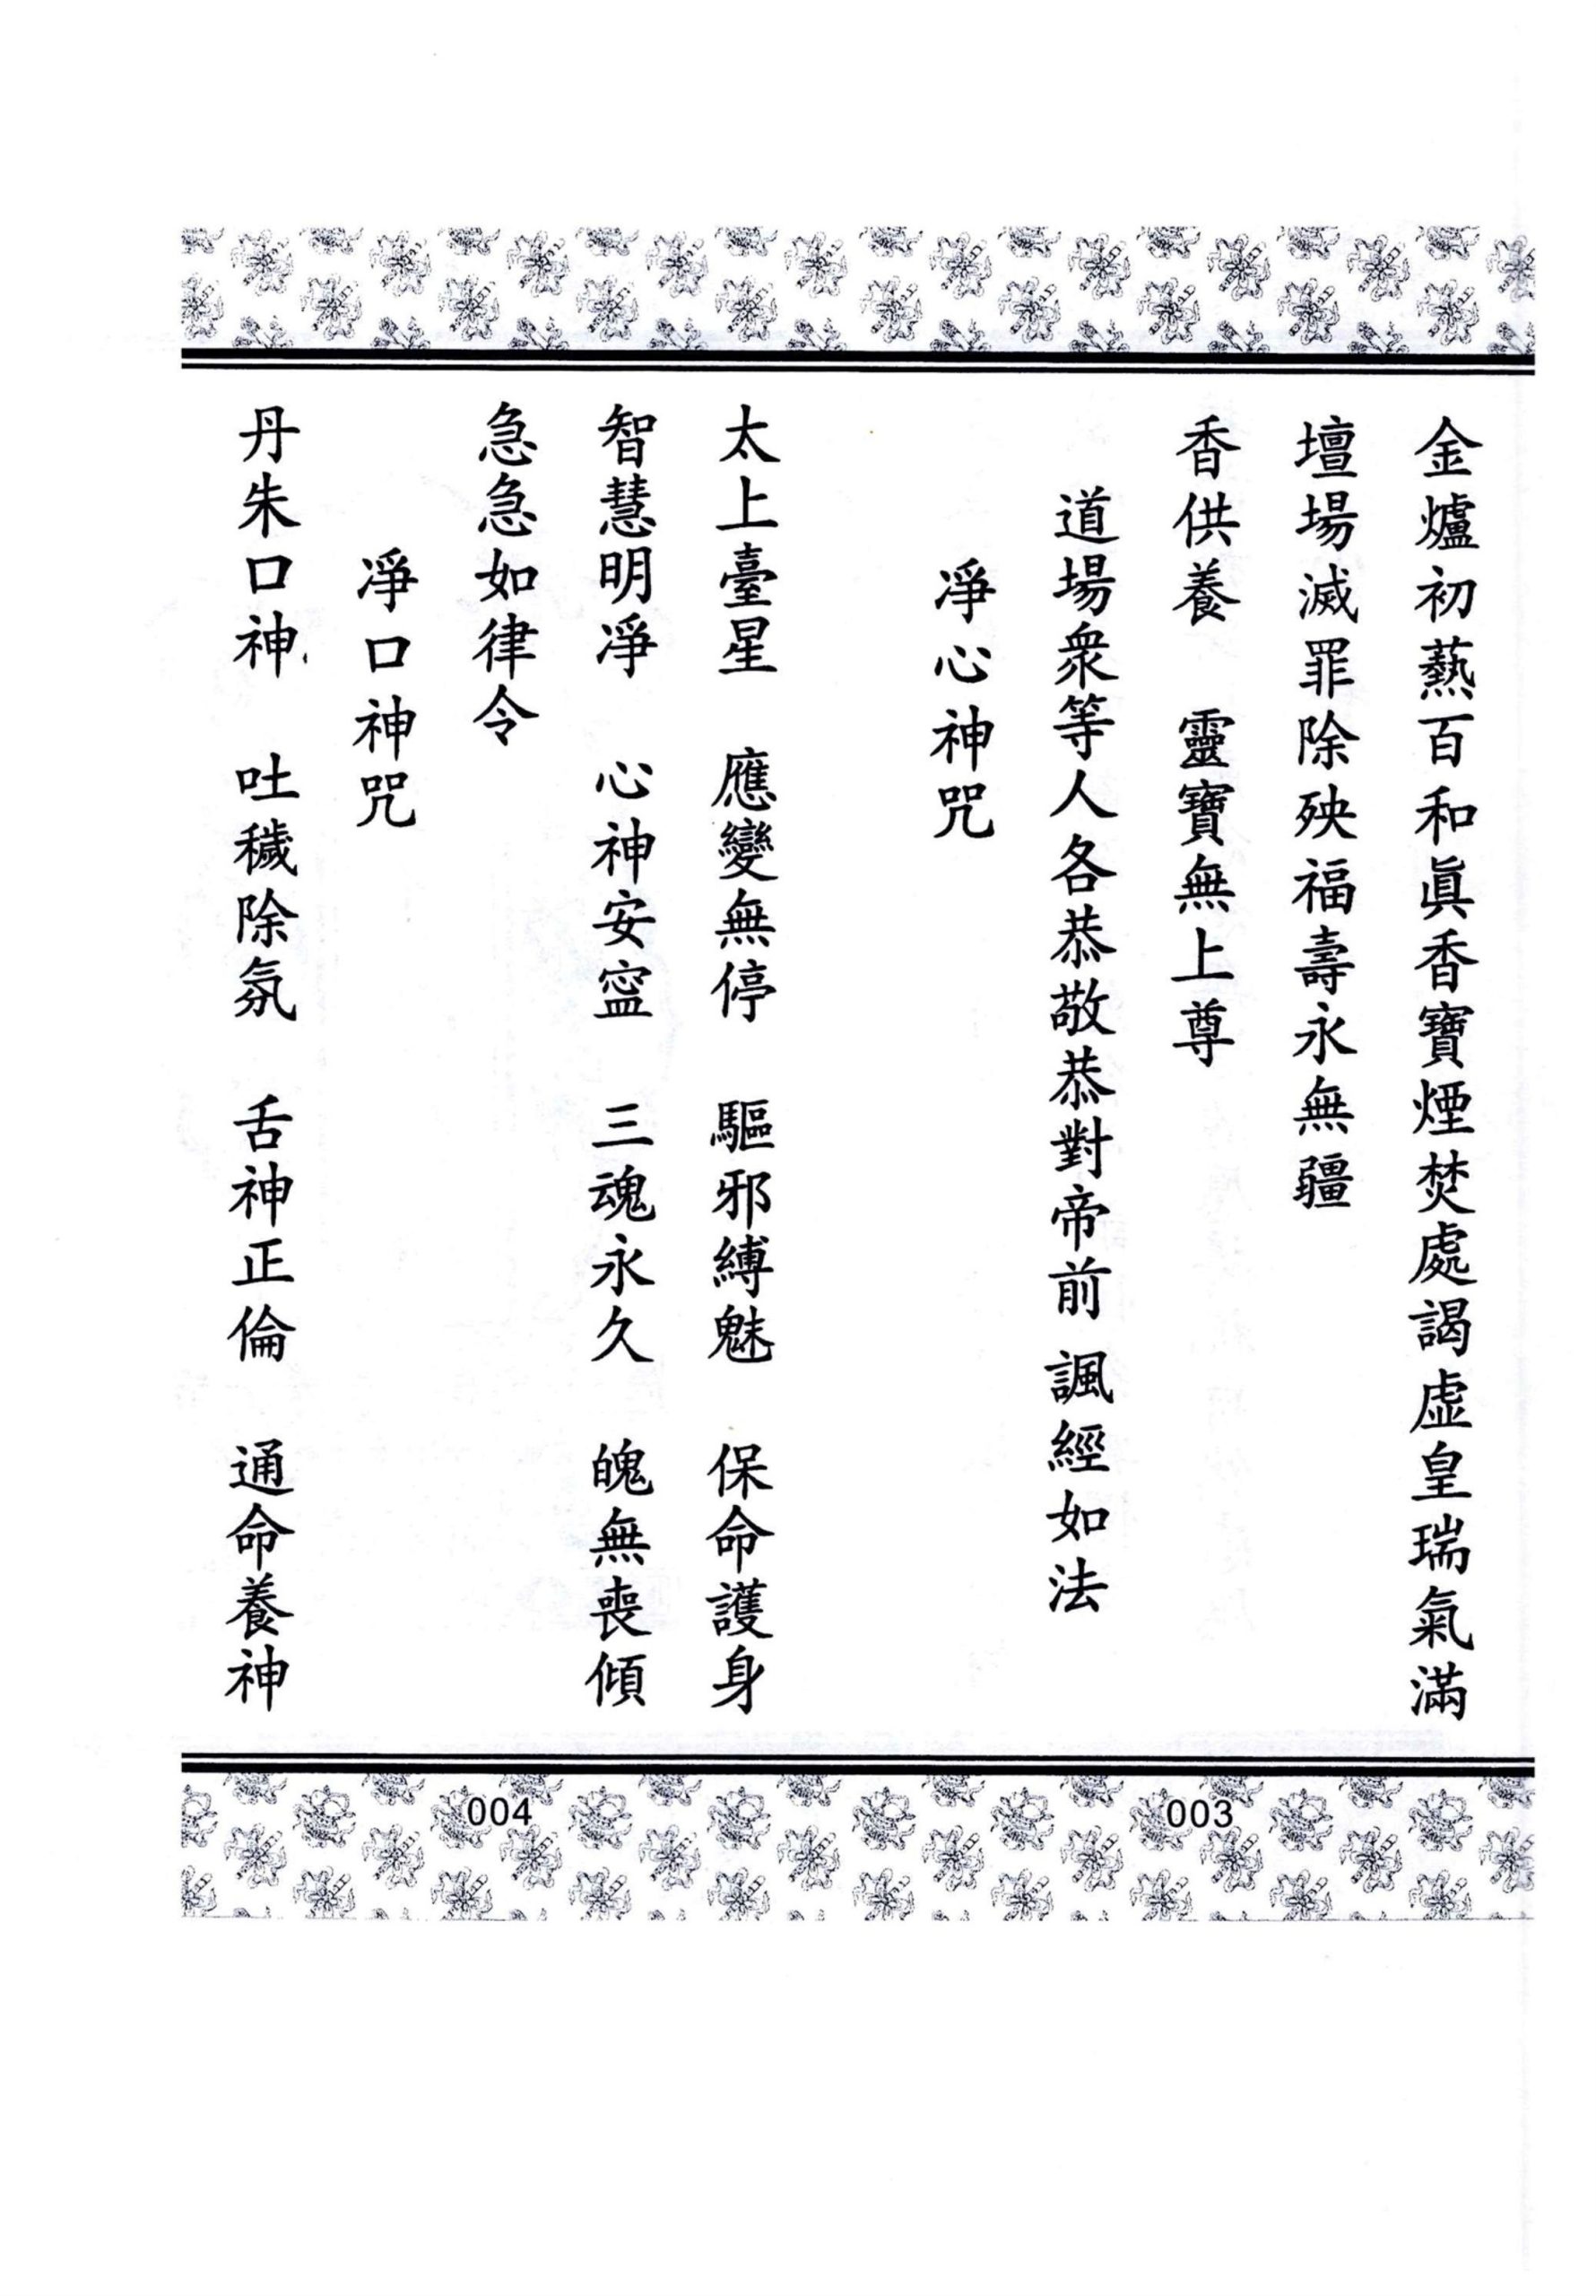 金爐初爇百和眞香寶煙焚處謁虛皇瑞氣滿
壇場滅罪除殃福壽永無疆
香供養　靈寶無上尊
道場衆等人各恭敬恭對帝前 諷經如法
淨心神咒
003
太上臺星　應變無停　驅邪縛魅　保命護身
智慧明淨　心神安寍　三魂永久　魄無喪傾
急急如律令
淨口神咒
丹朱口神　吐穢除氛　舌神正倫　通命養神
004